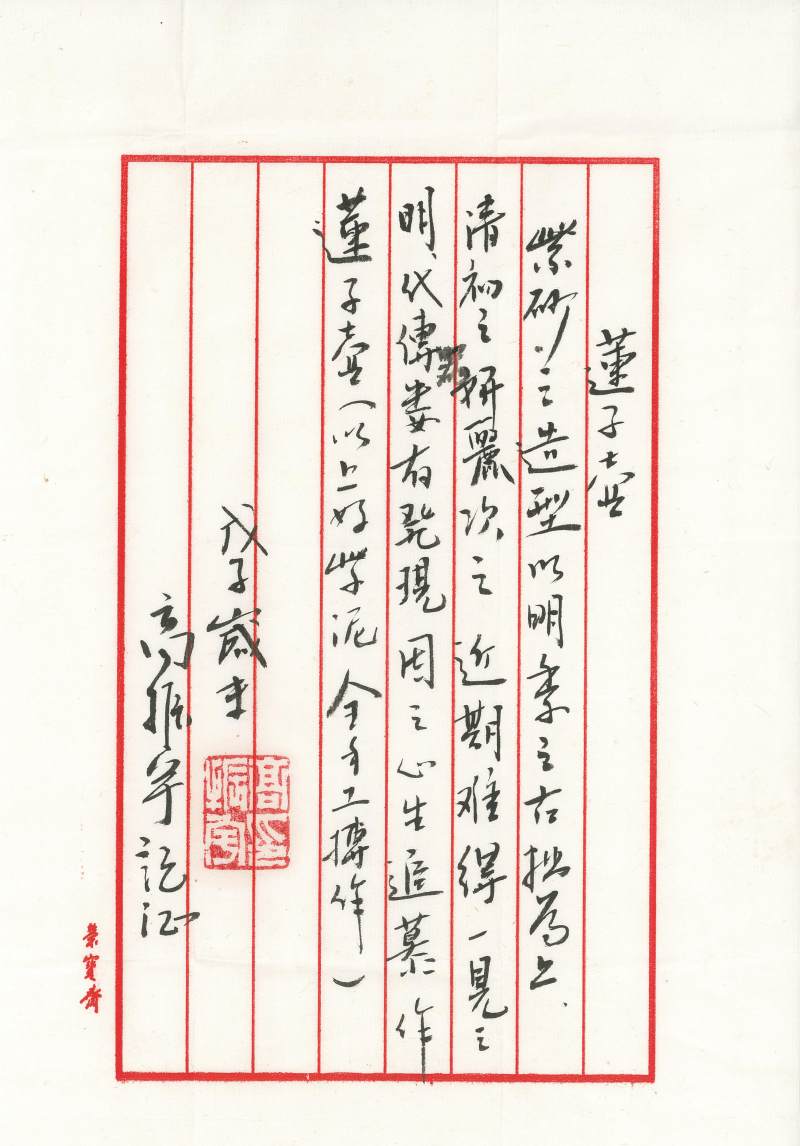 蓮子壺
紫砂之造型以明季之古拙為上、
清初之妍麗次之近期难得一見之
明代傳婁有発現因之心生追慕作
蓮子壺(以上好紫泥全手工摶作)
戊子歲末
高振宇記证
高振宇印
榮寶齋